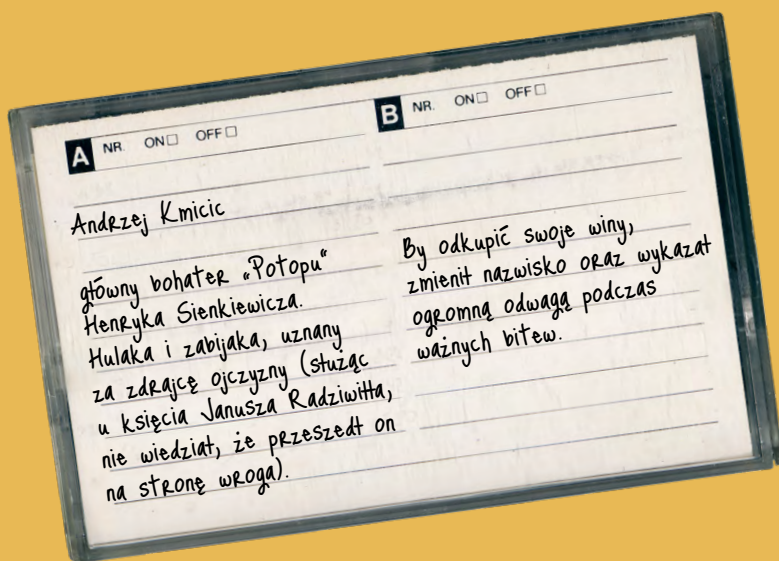 A NR. ON OFF
Andrzej Kmicic
główny bohater „Potopu”
Henryka Sienkiewicza.
Hulaka i zabijaka, uznany
za zdrajcę ojczyzny (służąc
u księcia Janusza Radziwiłła,
nie wiedział, że przeszedł on
na stronę wroga).
B NR. ON OFF
By odkupić swoje winy,
zmienił nazwisko oraz wykazał
ogromną odwagę podczas
ważnych bitew.